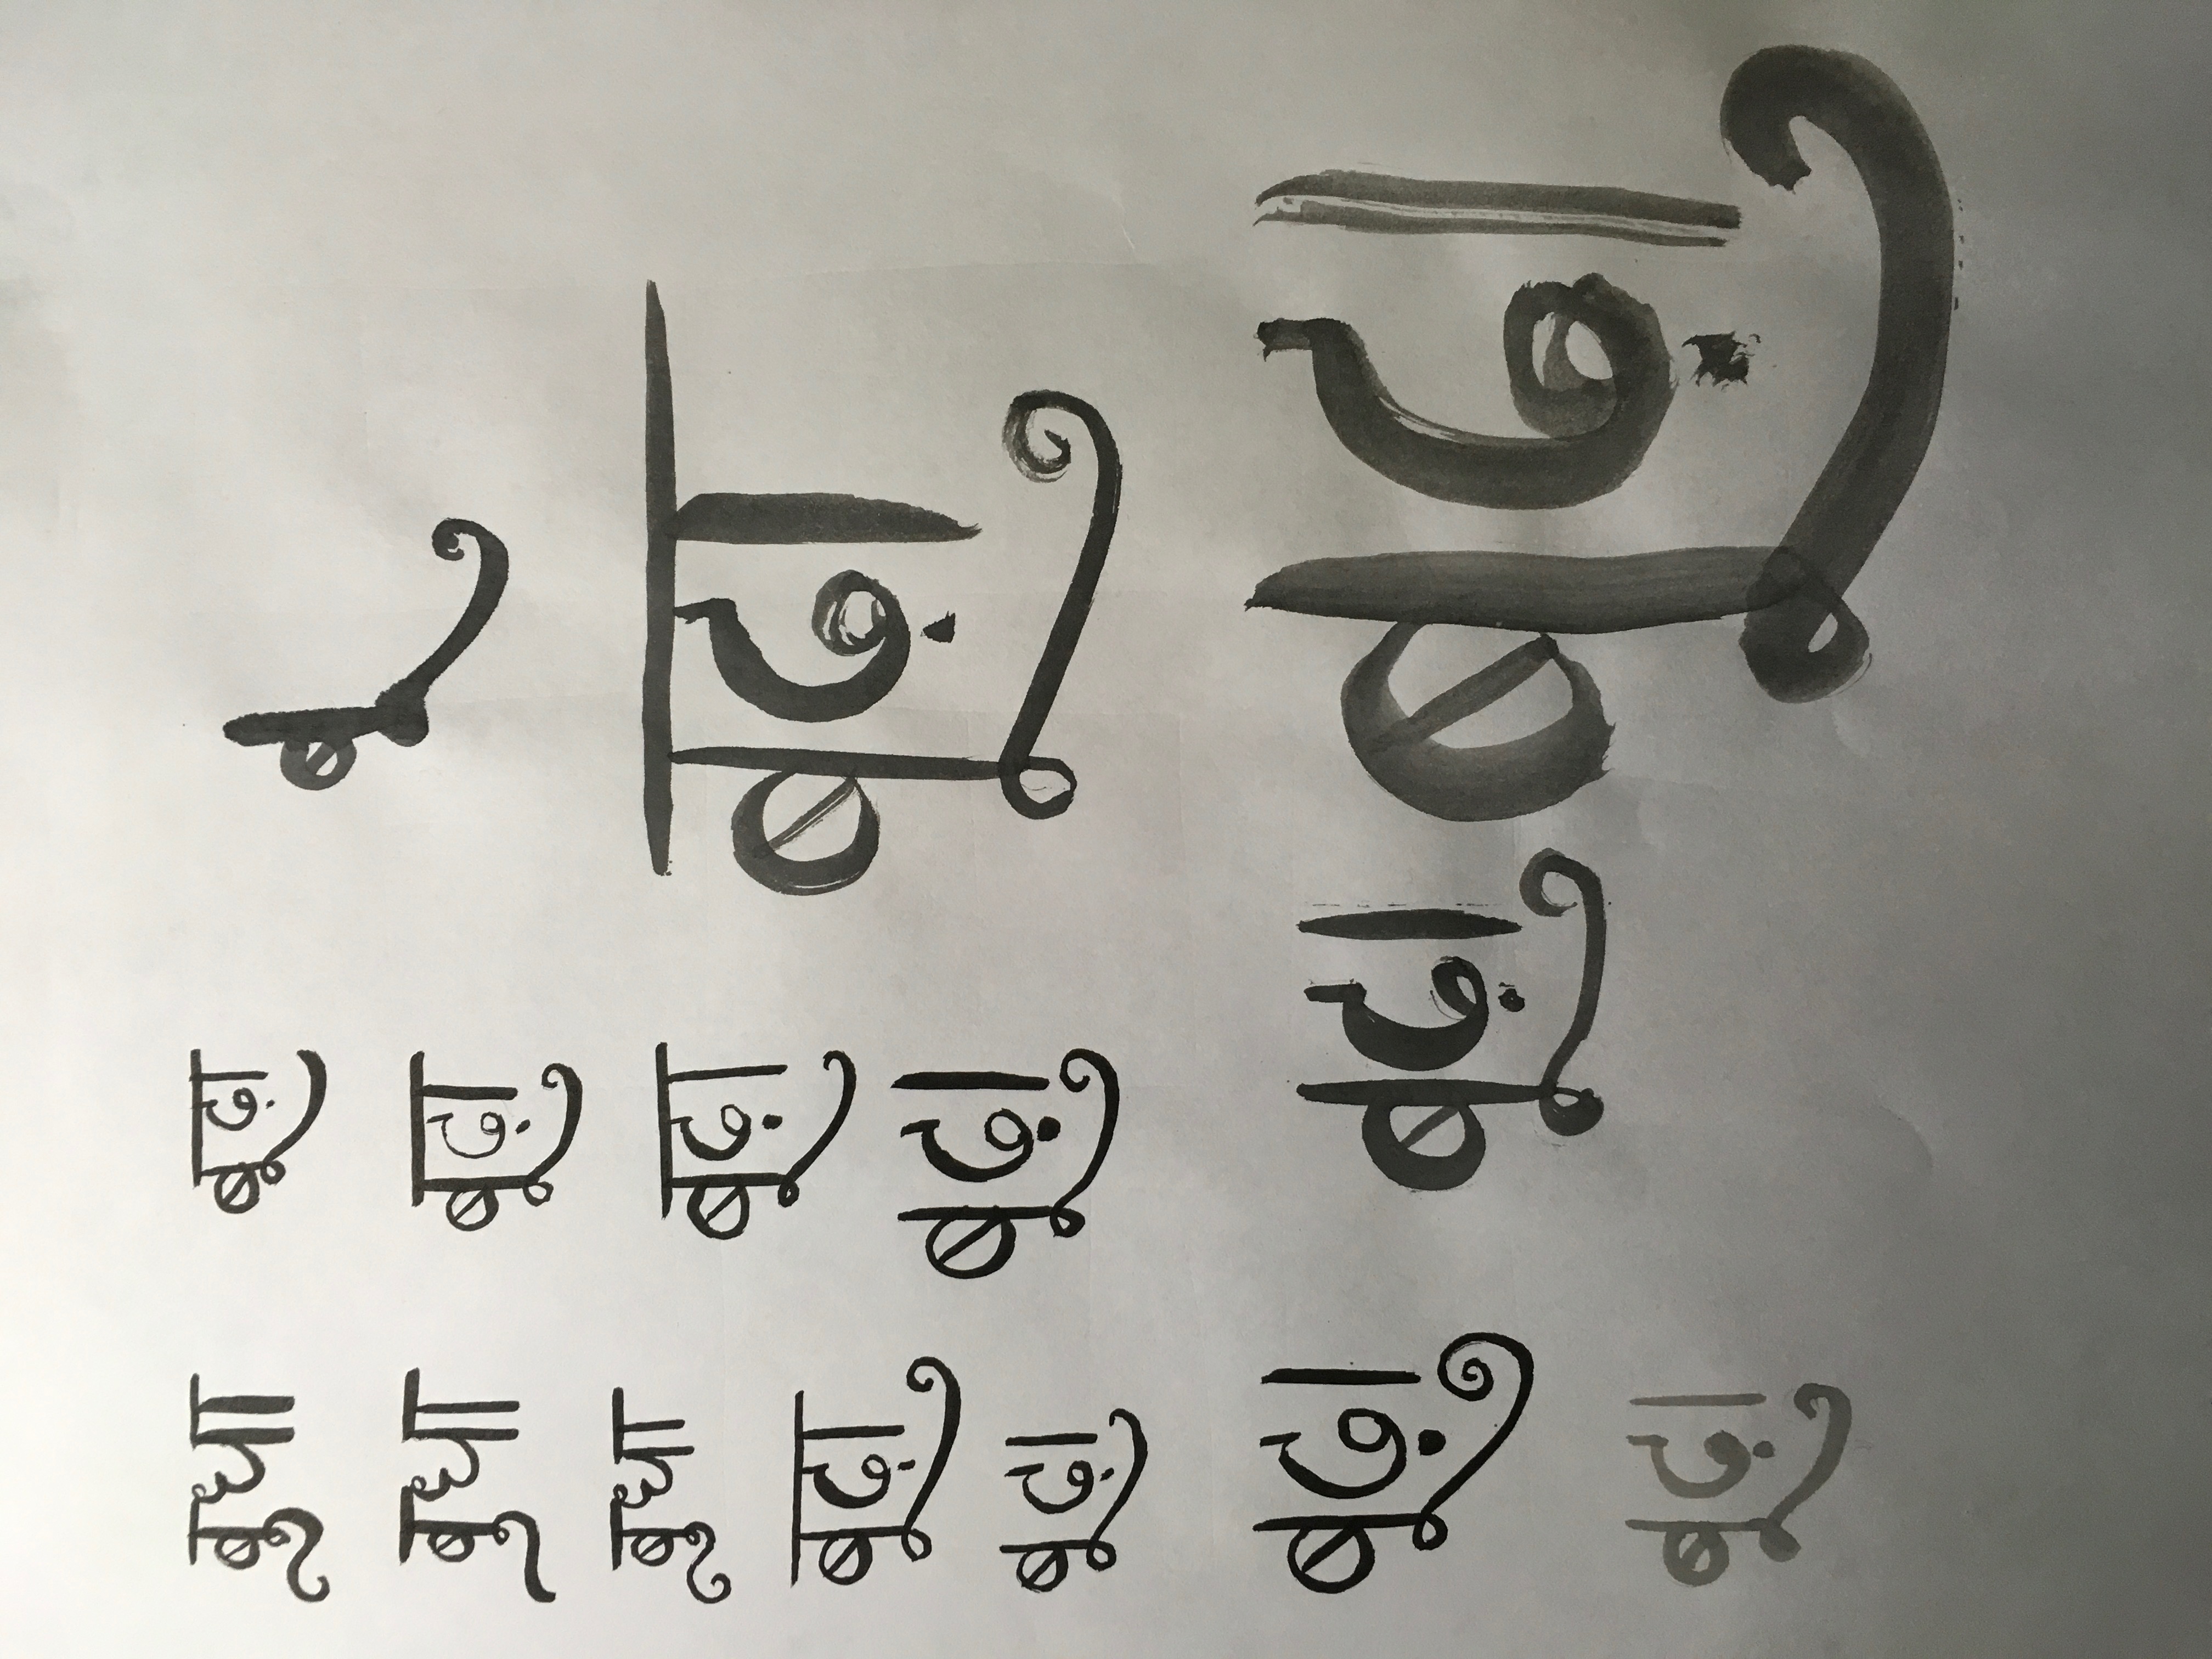 बुधा बूढ़ा बू
बुधा बूढ़ा
बुधा बूढ़ा बूढ़ा
बूढ़ा बूढ़ा
बूढ़ा
बूढ़ा बूढ़ा बूढ़ा
बूढ़ा